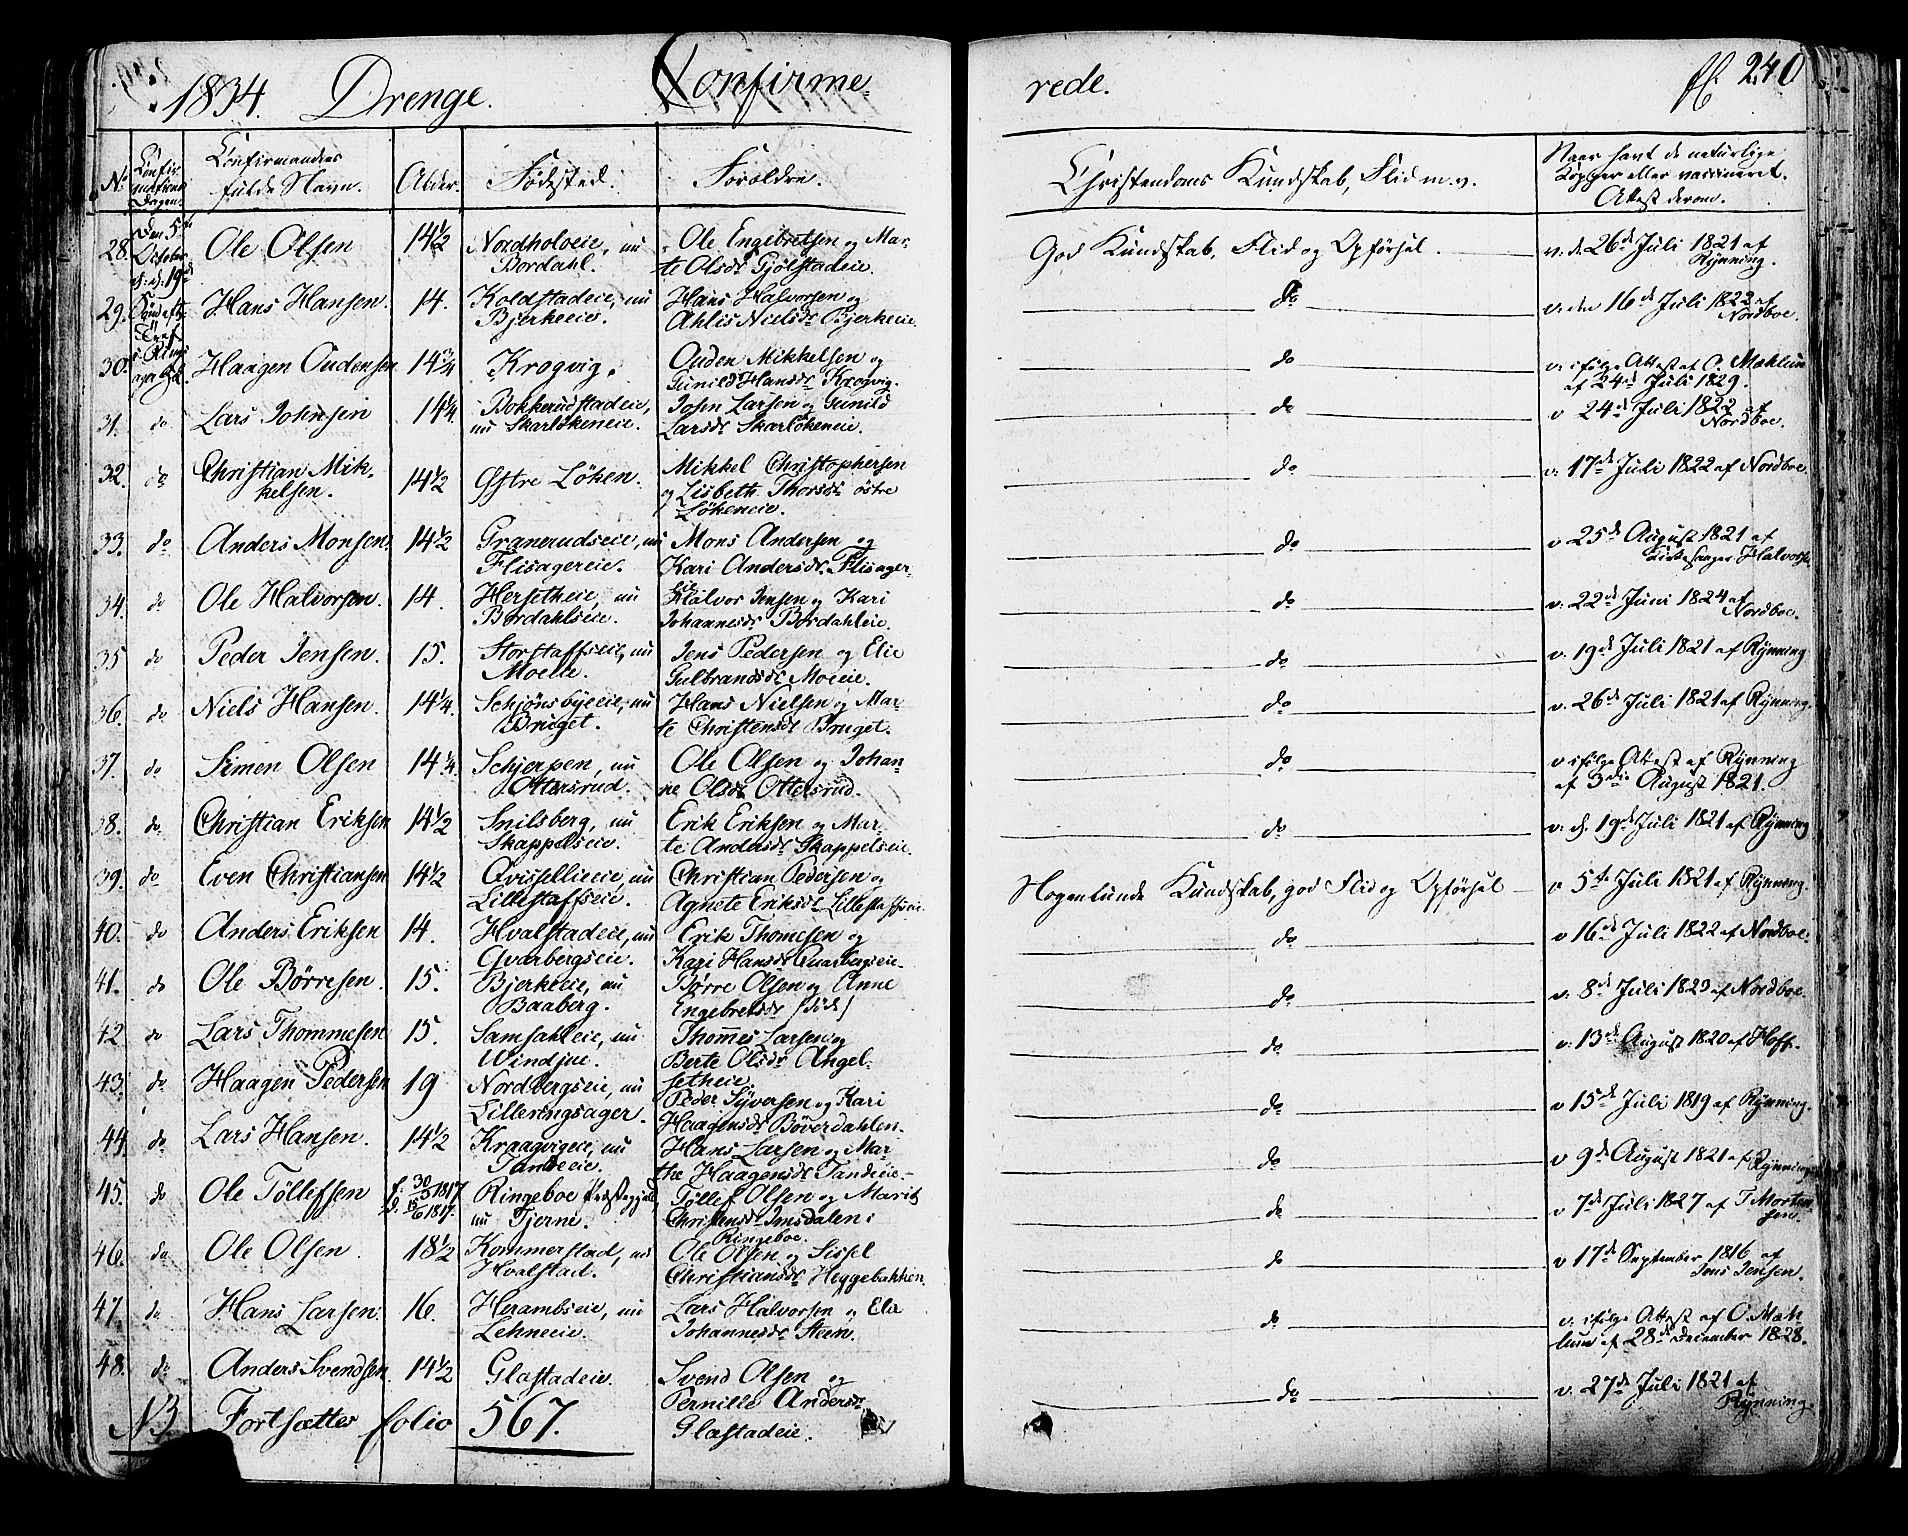 1834. Drenge. Confirme- rede. fl. 240
No. Confirmations Dagen. Confirmandens fulde Navn. Alder. Fødested. Forældre. Christendoms Kundskab, Flid m.v. Naar havt de naturlige Kopper eller vaccineret. Attest derom.
28. Den 5te October Ole Olsen 14 1/2 Nordholoeie, nu Bordahl. Ole Engebretsen og Marte Olsdr Gjølstadeie. God Kundskab, Flid og Opførsel. v. d. 26de Juli 1821 af Rynning.
29. Hans Hansen. 14. Koldstadeie, nu Bjerkeeie. Hans Halvorsen og Ahlis Nielsdr Bjerkeeie. do v. den 16de Juli 1822 af Nordboe.
30. Haagen Oudensen 14 3/4 Krogvig. Ouden Mikkelsen og Gunild Hansdr Krogvig. do v. ifølge Attest af O. Mæhlum af 24de Juli 1829.
31. do Lars Johnsen 14 1/4 Bokkerudstadeie, nu Skarløkeneie. John Larsen og Gunild Larsdr Skarløkeneie. do v 24de Juli 1822 af Nordboe.
32. do Christian Mikkelsen. 14 1/2 Østre Løken. Mikkel Christophersen og Lisbeth Thorsdr østre Løkeneie. do v. 17de Juli 1822 af Nordboe.
33. do Anders Monsen. 14 1/2 Granerudseie, nu Flisagereie. Mons Andersen og Kari Andersdr Flisagereie. do v 25de August 1821 af Kirkesanger Halvorsen
34. do Ole Halvorsen. 14. Hersetheie, nu Bordahlseie. Halvor Jensen og Kari Johannesdr Bordahleie. do v. 22de Juni 1824 af Nordboe.
35 do Peder Jensen. 15. Storstaffseie, nu Moelle. Jens Pedersen og Elie Gulbrandsdr Moeie. do v. 19de Juli 1821 af Rynning
36. do Niels Hansen. 14 1/4. Schjønsbyeeie, nu Bruget. Hans Nielsen og Marte Christensdr Bruget. do v. 26de Juli 1821 af Rynning.
37. do Simen Olsen 14 1/4. Schjerpen, nu Ottersrud. Ole Olsen og Johanne Olsdr Ottersrud. do v ifølge Attest af Rynning af 3die August 1821.
38. do Christian Eriksen 14 1/2 Snilsberg, nu Skappelseie. Erik Eriksen og Marte Andersdr Skappelseie. do v. d. 19de Juli 1821 af Rynning
39. do Even Christiansen 14 1/2 Qvisellieeie, nu Lillestaffseie. Christian Pedersen og Agnete Eriksdr Lillestaffseie. Nogenlunde Kundskab, god Flid og Opførsel v 5te Juli 1821 af Rynning.
40. do Anders Eriksen 14. Hvalstadeie, nu Qvarbergseie. Erik Thomesen og Kari Hansdr Qvarbergseie. do v 16de Juli 1822 af Nordboe.
41. do Ole Børresen. 15. Bjerkeeie, nu Baaberg. Børre Olsen og Anne Engebretsdr (død) do v. 8de Juli 1823 af Nordboe.
42 do Lars Thommesen 15. Samsahleie, nu Windjue. Thommes Larsen og Berte Olsdr Angelsetheie. do v. 13de August 1820 af Hoff.
43. do Haagen Pedersen 19 Nordbergseie, nu Lilleringsager. Peder Syversen og Kari Haagensdr Bøverdahlen. do v 15de Juli 1819 af Rynning.
44. do Lars Hansen. 14 1/2 Kraagvigeie, nu Tandeeie. Hans Larsen og Marthe Haagensdr Tandeeie. do v 9de August 1821 af Rynning
45. do Ole Tøllefsen f. 30/5 1817. d. 15/6 1817. Ringeboe Præstegjeld nu Tjerne. Tøllef Olsen og Marit Christensdr Imsdalen i Ringeboe. do v 7de Juli 1827 af T. Mortensen.
46. do Ole Olsen. 18 1/2 Kommerstad, nu Hvalstad. Ole Olsen og Sissel Christiansdr Heggebakken. do v 17de September 1816 af Jens Jensen.
47. do Hans Larsen. 16. Herambseie, nu Lehneeie. Lars Halvorsen og Ela Johannesdr Steen. do v. ifølge Attest af O. Mæhlum af 28de December 1828.
48. do Anders Svendsen 14 1/2 Glæstadeie. Svend Olsen og Pernille Andersdr Glæstadeie. do v. 27de Juli 1821 af Rynning.
NB Fortsætter folio 567.